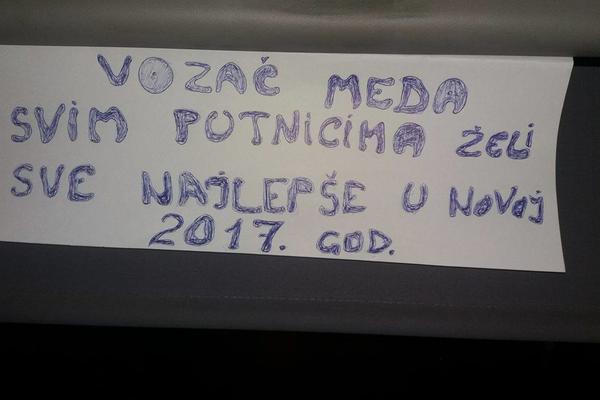 VOZAČ MEDA
SVIM PUTNICIMA ŽELI
SVE NAJLEPŠE U NOVOJ
2017. GOD.